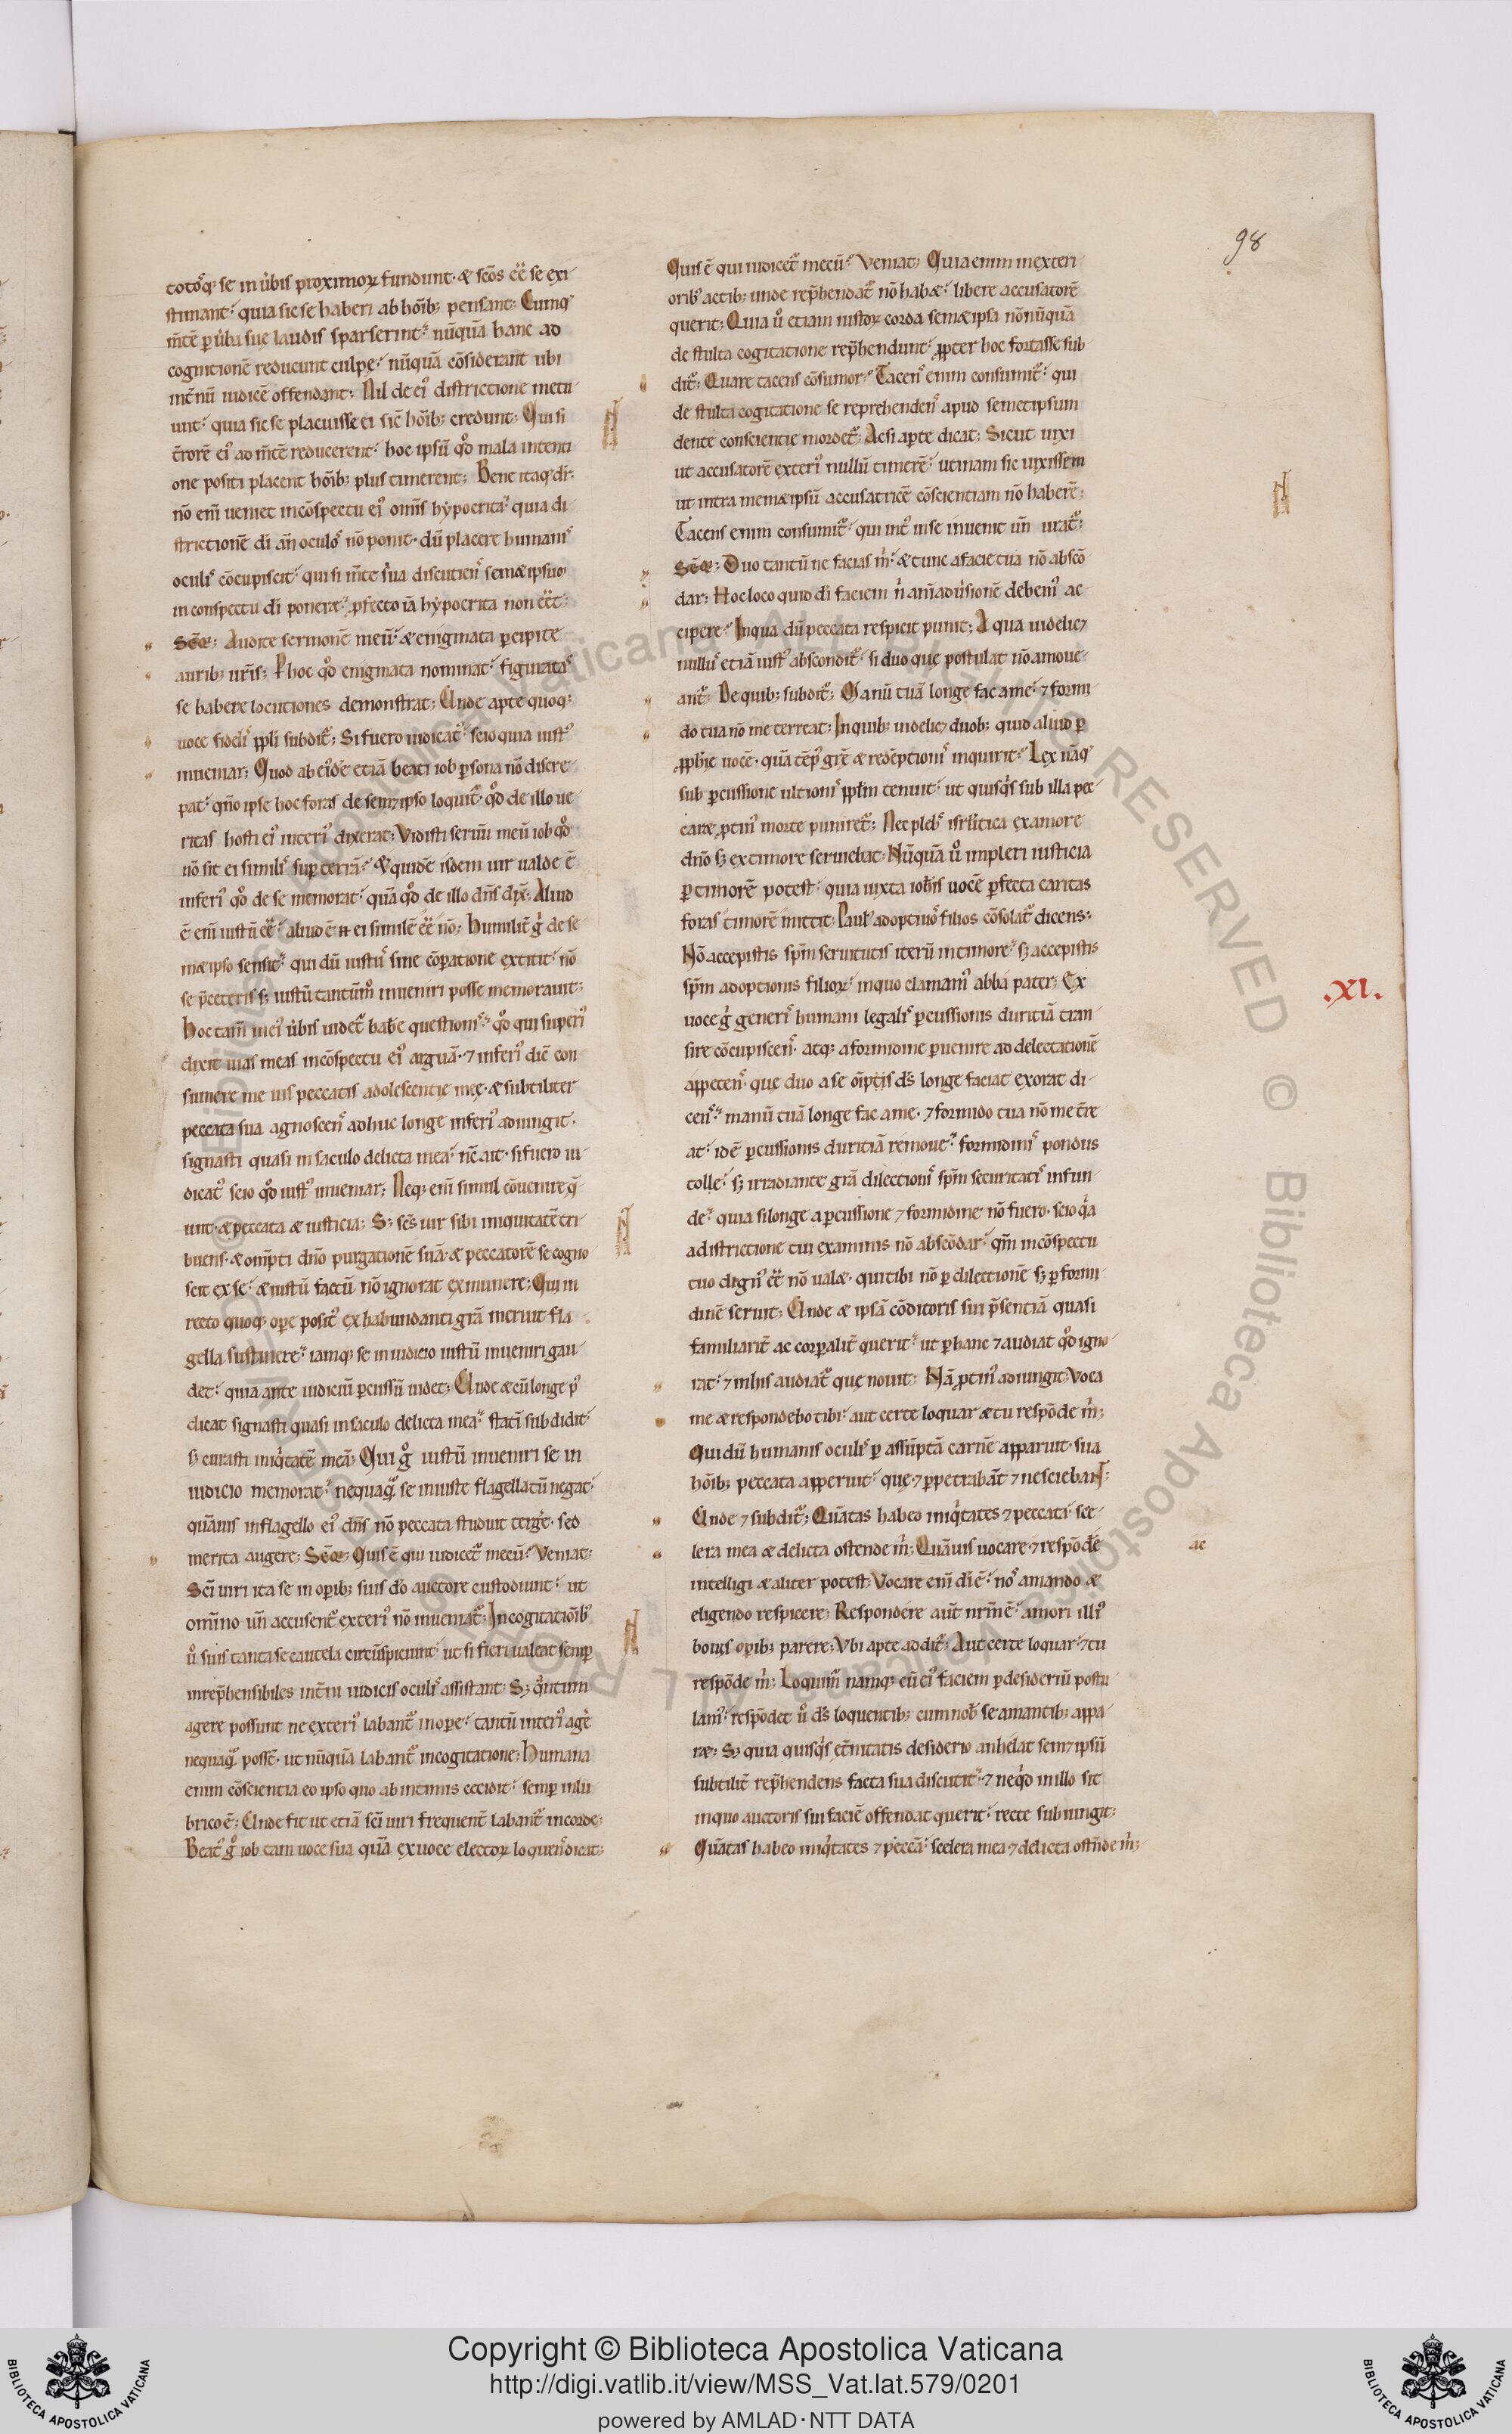 98
totosq; se in ũbis proximoꝝ fundunt. & scōs eē se exi
stimant. quia sic se haberi ab hōib; pensant; Cumq;
m̄tē p ũba suę laudis sparserint. nūquā hanc ad
cognitionē reducunt culpe. nūquā cōsiderant ubi
int̄nū iudicē offendant; Nil de ei' districtione metu
unt. quia sic se placuisse ei sic̄ hōib; credunt; Qui si
t̄rorē ei' ad m̄tē reducerent. hoc ipsū qđ mala intenti
one positi placent hōib; plus timerent; Bene itaq; dr̄.
nō em̄ ueniet in cōspectu ei' om̄s hypocrita. quia di
strictionē di an̄ oculos nō ponit. dū placere humanis
oculis cōcupiscit. qui si m̄te s̄ua discutiens sem&ipsuō
in conspectu di poneret. pfecto iā hypocrita non eēt;
Seq̄: Audite sermonē meū. & enigmata pcipite
aurib; ur̄is; P hoc qđ enigmata nominat. figuratas
se habere locutiones demonstrat; Unde apte quoq;
uoce fidelis ppli subdit'; Si fuero iudicat'. scio quia iust'
inueniar; Quod ab ei'dē etiā beati iob psona nō discre
pat. qn̄o ipse hoc foras de sem&ipso loquit'. qđ de illo ue
ritas hosti ei' interi' dixerat; Vidisti seruū meū iob qđ
nō sit ei similis sup terrā. Et quidē isdem uir ualde ē
inferi' qđ de se memorat. quā qđ de illo dn̄s dix̄; Aliud
ē em̄ iustū eē. aliud ē ei similē eē nō; Humilit̄ g̊ de se
m&ipso sensit. qui dū iustus sine cōparatione extitit. nō
se p̄ ceteris sȝ iustū tantūm° inueniri posse memorauit;
Hoc tam̄ mei' ũbis uidet' hab̄e questionis. qđ qui superi'
dixit uias meas in cōspectu ei' arguā. ⁊ inferi' dic̄ con
sumere me uis peccatis adolescentię meę. & subtiliter
peccata sua agnoscens adhuc longe inferi' adiungit.
signasti quasi in saculo delicta mea. nc̄ ait. si fuero iu
dicat' scio qđ iust' inueniar; Neq; em̄ simul cōuenire q̄
unt. & peccata & iusticia; Sȝ scs̄ uir sibi iniquitatē tri
buens. & om̄pti dn̄o purgationē suā. & peccatorē se cogno
scit ex se. & iustū factū nō ignorat ex munere; Qui in
recto quoq; ope posit' ex habundanti grā meruit fla
gella sustinere. iamq; se in iudicio iustū inueniri gau
det. quia ante iudiciū pcussū uidet; Unde & cū longe p'
dicat signasti quasi in saculo delicta mea. statī subdidit.
sȝ curasti iniq̊tatē meā; Qui g̊ iustū inueniri se in
iudicio memorat. nequaq̄ se iniuste flagellatū negat.
quāuis in flagello ei' dn̄s nō peccata studuit terḡe. sed
merita augere; Seq̄; Quis ē qui iudicet' mecū. Veniat;
Sc̄i uiri ita se in opib; suis do auctore custodiunt. ut
om̄ino un̄ accusent' exteri' nō inueniat'; In cogitatiōib'
ů suis tanta se cautela circūspiciunt. ut si fieri ualeat semp
inrep̄hensibiles int̄ni iudicis oculis assistant; Sȝ q̊ntum
agere possunt ne exteri' labant' in ope. tantū interi' aḡe
nequaq̄ posst̄. ut nūquā labant' in cogitatione; Humana
enim cōscientia eo ipso quo ab intimis cecidit. semp in lu
brico ē; Unde fit ut etiā sc̄i uiri frequent̄ labant' in corde;
Beat' g̊ iob tam uoce sua quā ex uoce electoꝝ loquens dicat;
Quis ē qui iudicet' mecū. Veniat; Quia enim in exteri
orib' actib; unde rep̄hendat' nō hab&. libere accusatorē
querit; Quia ů etiam iustoꝝ corda sem&ipsa nōnūquā
de stulta cogitatione rep̄hendunt. ꝓpter hoc fortasse sub
dit'; Quare tacens cōsumor. Tacens enim consumit'. qui
de stulta cogitatione se reprehendens apud semetipsum
dente conscientię mordet'; Ac si apte dicat; Sicut uixi
ut accusatorē exteri' nullū timerē. utinam sic uixissem
ut intra mem&ipsū accusatricē cōscientiam nō haberē;
Tacens enim consumit'. qui int' in se inuenit un̄ urat';
Seq̄; Duo tantū ne facias m̊. & tunc a facie tua nō abscō
dar; Hoc loco quid di faciem n̊ anīaduersionē debem' ac
cipere. In qua dū peccata respicit punit; A qua uidelic&
nullus etiā iust' abscondit'. si duo que postulat nō amoue
ant'; De quib; subdit'; Manū tuā longe fac a me. ⁊ formi
do tua nō me terreat; In quib; uidelic& duob; quid aliud p
ꝓph̄ię uocē. quā tēp' grę & redēptionis inquirit. Lex nāq;
sub pcussione ultionis pplm tenuit. ut quisq̊s sub illa pec
car& ꝓtin' morte puniret'; Nec plebs isrl̄itica ex amore
dn̄o sȝ ex timore seruiebat; Nūquā ů impleri iusticia
p timorē potest. quia iuxta ioh̄is uocē pfecta caritas
foras timorē mittit; Paul' adoptiuos filios cōsolat' dicens;
Nō accepistis spm̄ seruitutis iterū in timore. sȝ accepistis
spm̄ adoptionis filioꝝ. in quo clamam' abba pater; Ex
uoce g̊ generis humani legalis pcussionis duritiā tran
sire cōcupiscens. atq; a formidine puenire ad delectationē
appetens. que duo a se om̄ptis ds̄ longe faciat exorat di
cens. manū tuā longe fac a me. ⁊ formido tua nō me t̄rre
at. idē pcussionis duritiā remoue. formidinis pondus
tolle. sȝ irradiante grā dilectionis spm̄ securitatis infun
de. quia si longe a pcussione ⁊ formidine nō fuero. scio q̊a
a districtione tui examinis nō abscōdar. qm̄ in cōspectu
tuo dign' eē nō ual&. qui tibi nō p dilectionē sȝ p formi
dinē seruit; Unde & ipsā cōditoris sui p̄sentiā quasi
familiarit̄ ac corpalit̄ querit. ut p hanc ⁊ audiat qđ igno
rat. ⁊ in his audiat' quę nouit; Nā ꝓtin' adiungit; Voca
me & respondebo tibi. aut certe loquar & tu respōde m̊;
Qui dū humanis oculis p assūptā carnē apparuit. sua
hōib; peccata apperuit. que ⁊ ppetrabāt ⁊ nesciebant;
Unde ⁊ subdit'; Quātas habeo iniq̊tates ⁊ peccata. sce
lera mea & delicta ostende m̊; Quāuis uocare. ⁊ respōdē
ac
intelligi & aliter potest; Vocare em̄ di ē. nos amando &
eligendo respicere; Respondere aut̄ nrm̄ ē. amori illi'
bonis opib; parere; Vbi apte addit'; Aut certe loquar. ⁊ tu
respōde m̊; Loquim' namq; cū ei' faciem p desideriū postu
lam'. respōdet ů ds̄ loquentib; cum nob̄ se amantib; appa
r&; Sȝ quia quisq̊s et̄nitatis desiderio anhelat sem&ipsū
subtilit̄ rep̄hendens facta sua discutit. ⁊ neq̊d in illo sit
in quo auctoris sui faciē offendat querit. recte subiungit;
Quātas habeo iniq̊tates ⁊ peccā. scelera mea ⁊ delicta ostn̄de m̊;
.XI.
Copyright © Biblioteca Apostolica Vaticana
http://digi.vatlib.it/view/MSS_Vat.lat.579/0201
powered by AMLAD·NTT DATA